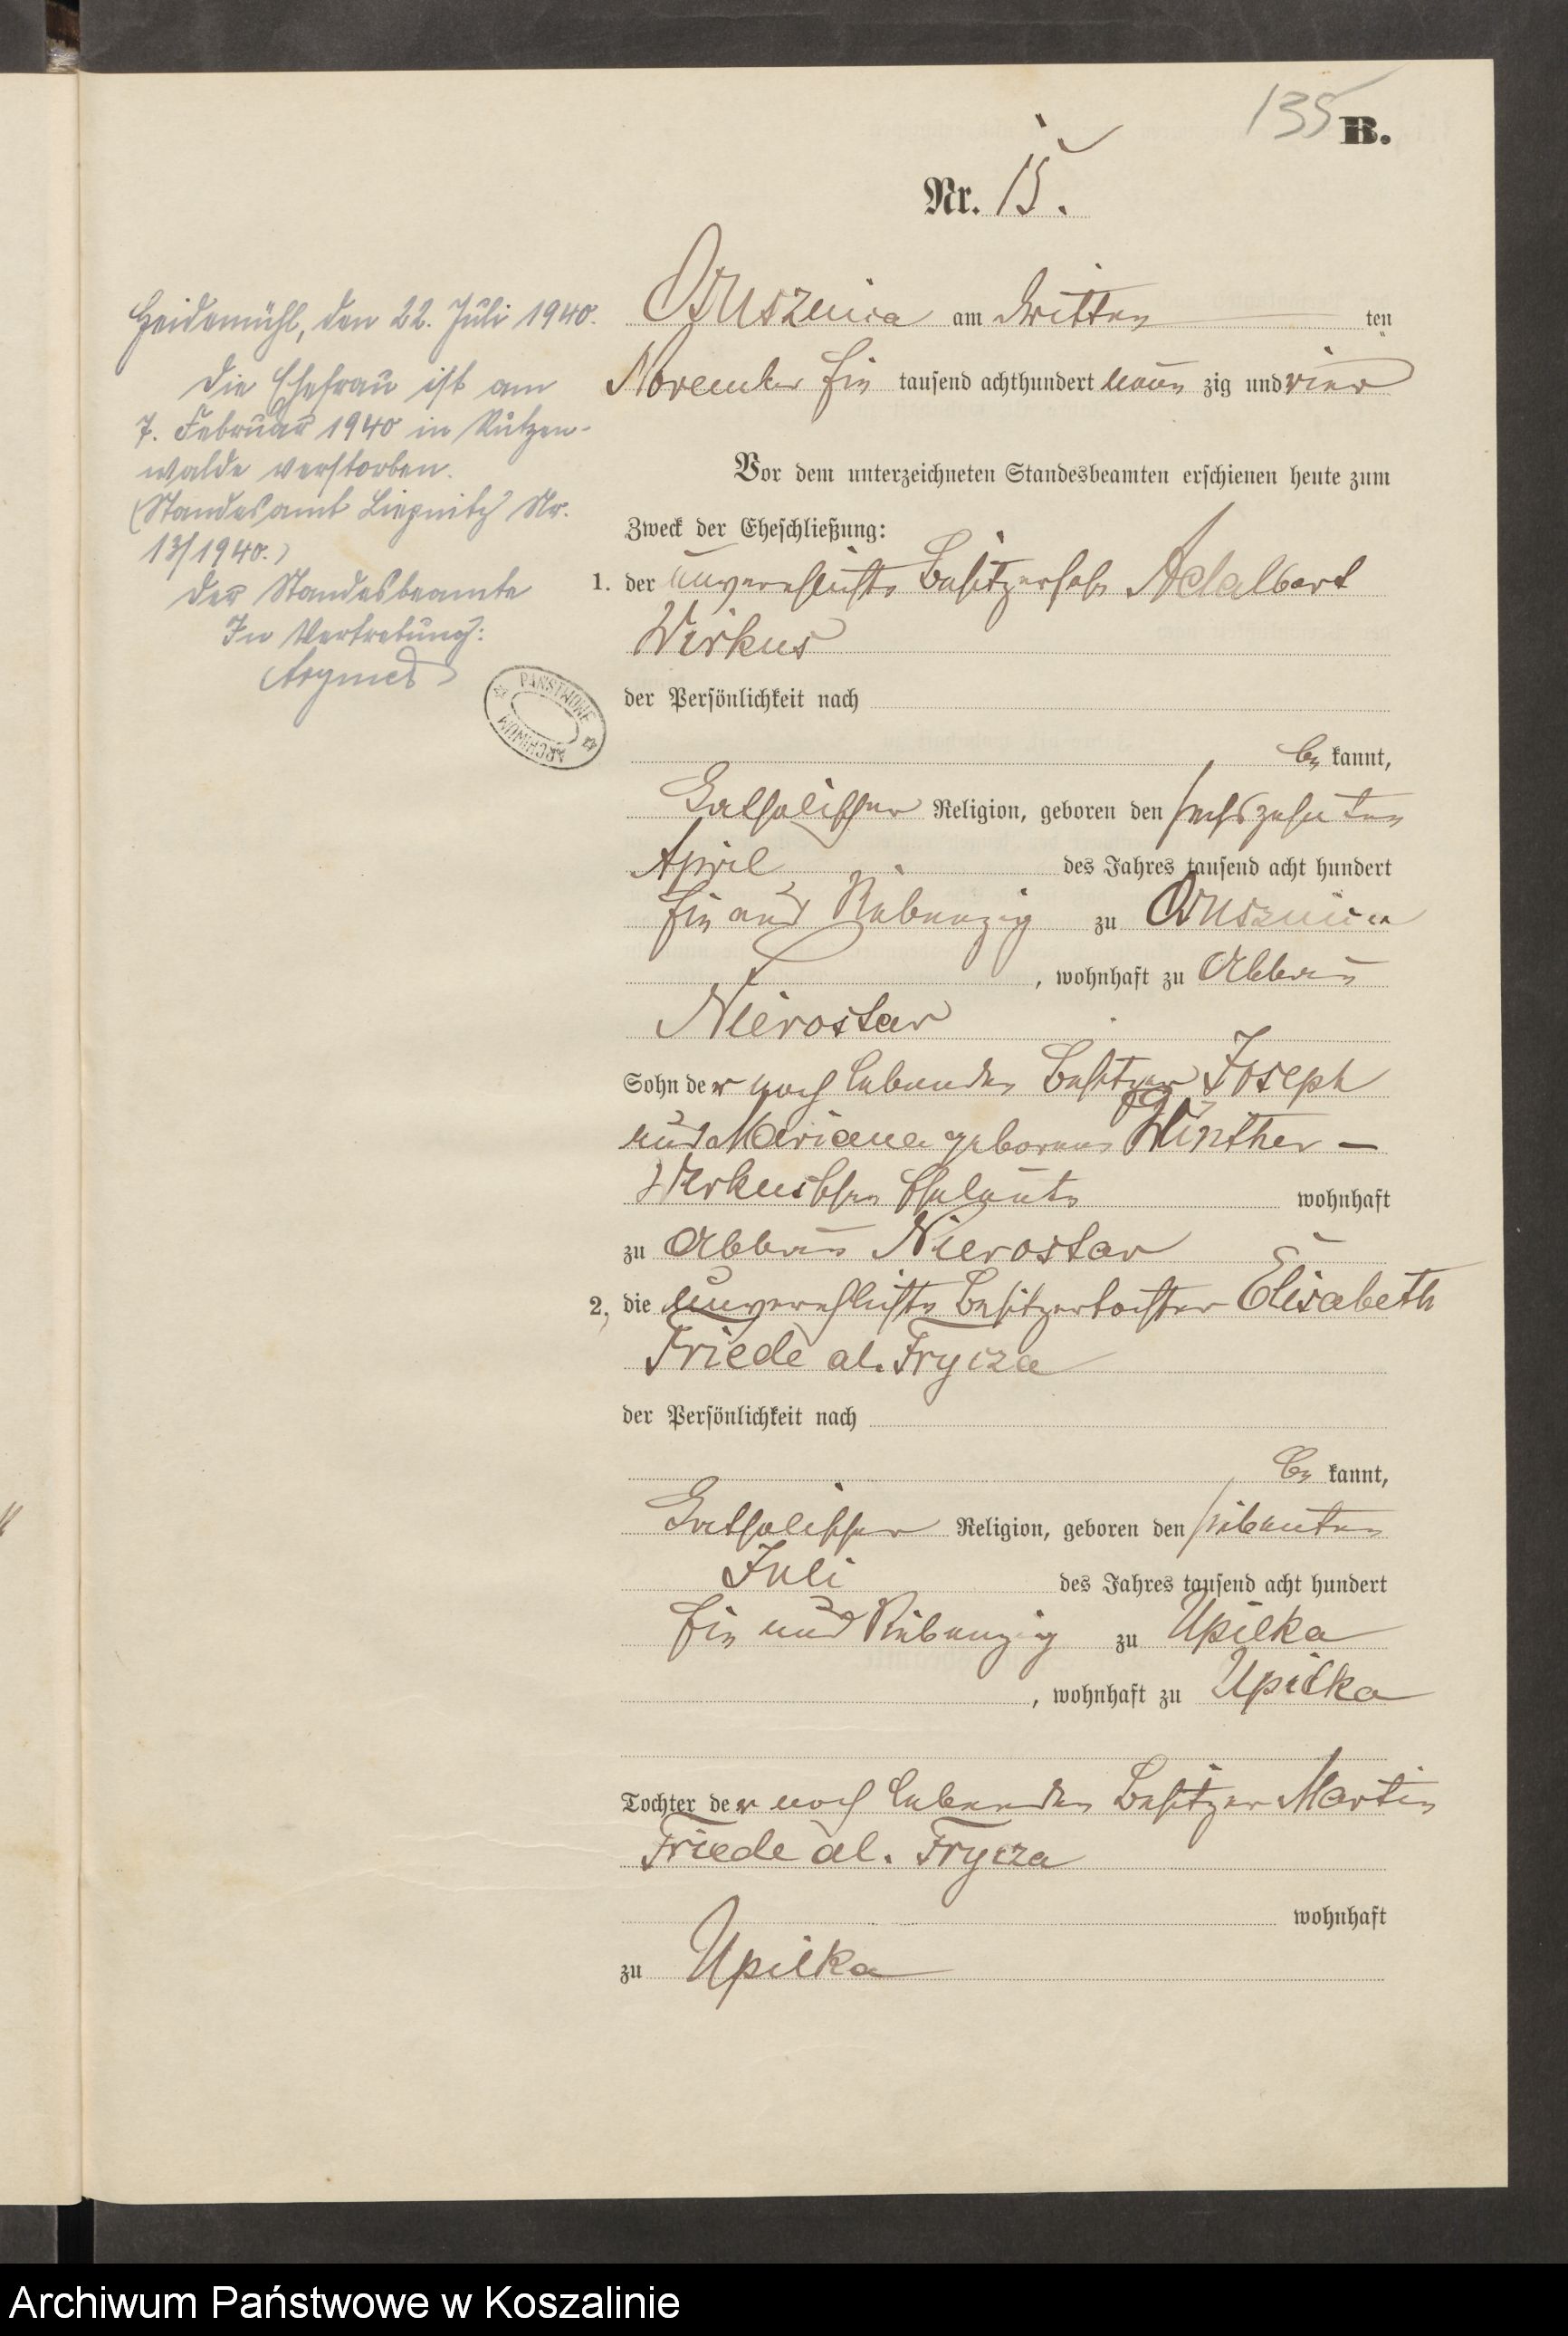 135 B.
Nr. 15.
Ossusznica am dritten ten
November Ein tausend achthundert neun zig und vier
Vor dem unterzeichneten Standesbeamten erschienen heute zum
Zweck der Eheschließung:
1. der unverehelichte Besitzersohn Adalbert
Wirkus
der Persönlichkeit nach
be kannt,
katholischer Religion, geboren den sechszehnten
April des Jahres tausend acht hundert
Ein und Siebenzig zu Ossusznica
, wohnhaft zu Abbau
Nierostaw
Sohn der noch lebenden Besitzer Joseph
und Mariana geborene Winther –
Wirkusschen Eheleute wohnhaft
zu Abbau Nierostaw
2, die unverehelichte Besitzertochter Elisabeth
Friede al. Frycza
der Persönlichkeit nach
be kannt,
katholischer Religion, geboren den siebenten
Juli des Jahres tausend acht hundert
Ein und Siebenzig zu Upilka
, wohnhaft zu Upilka
Tochter der noch lebenden Besitzer Martin
Friede al. Frycza
wohnhaft
zu Upilka
Heidemühl, den 22. Juli 1940.
Die Ehefrau ist am
7. Februar 1940 in Kützen-
walde verstorben.
(Standesamt Liepnitz Nr.
13/1940.)
Der Standesbeamte
In Vertretung:
PAŃSTWOWE ARCHIWUM
Archiwum Państwowe w Koszalinie